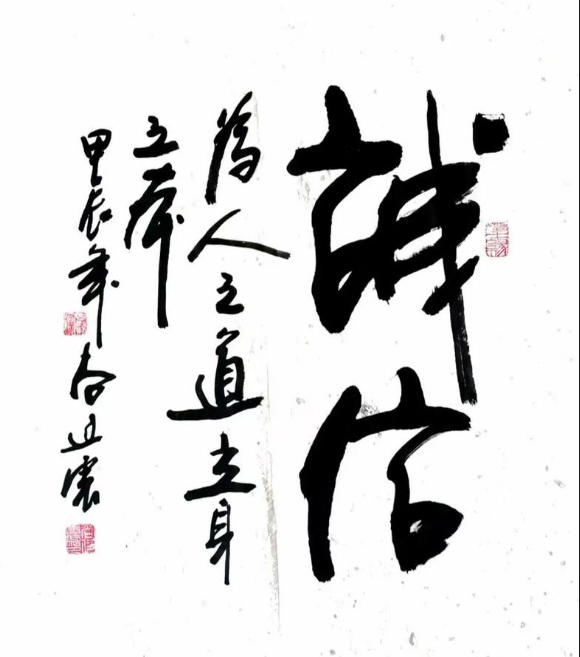 誠信
為人之道立身
之本
甲辰年